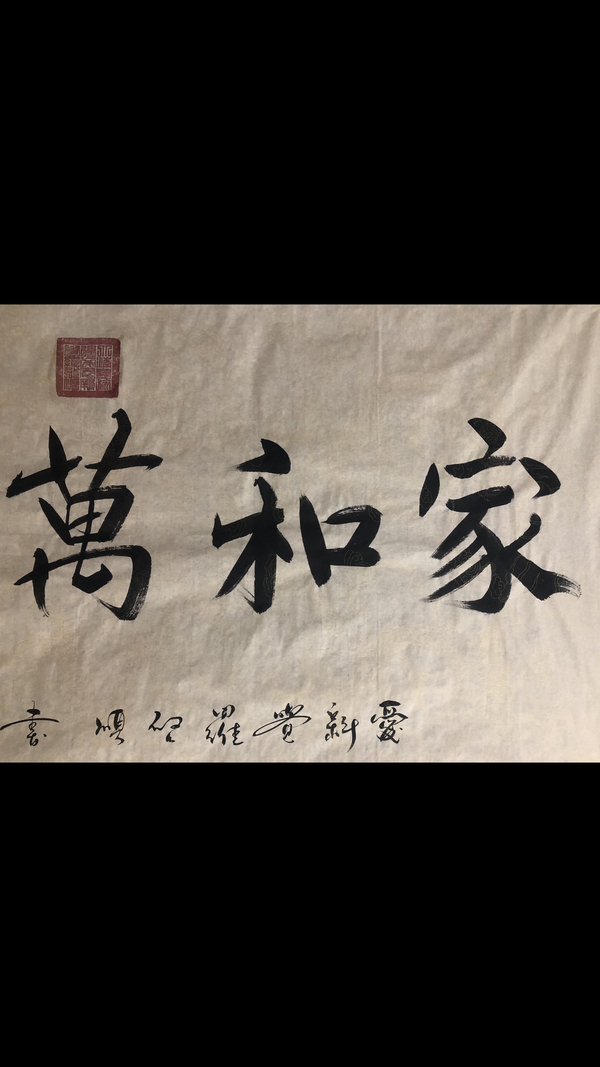 家和萬
愛新覺羅啓順書